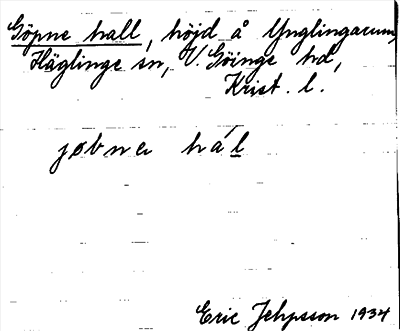 Göpne hall, höjd å Ynglingarum,
Häglinge sn, V. Göinge hd,
Krist. l.
jøbner hál
Eric Jehpsson 1934